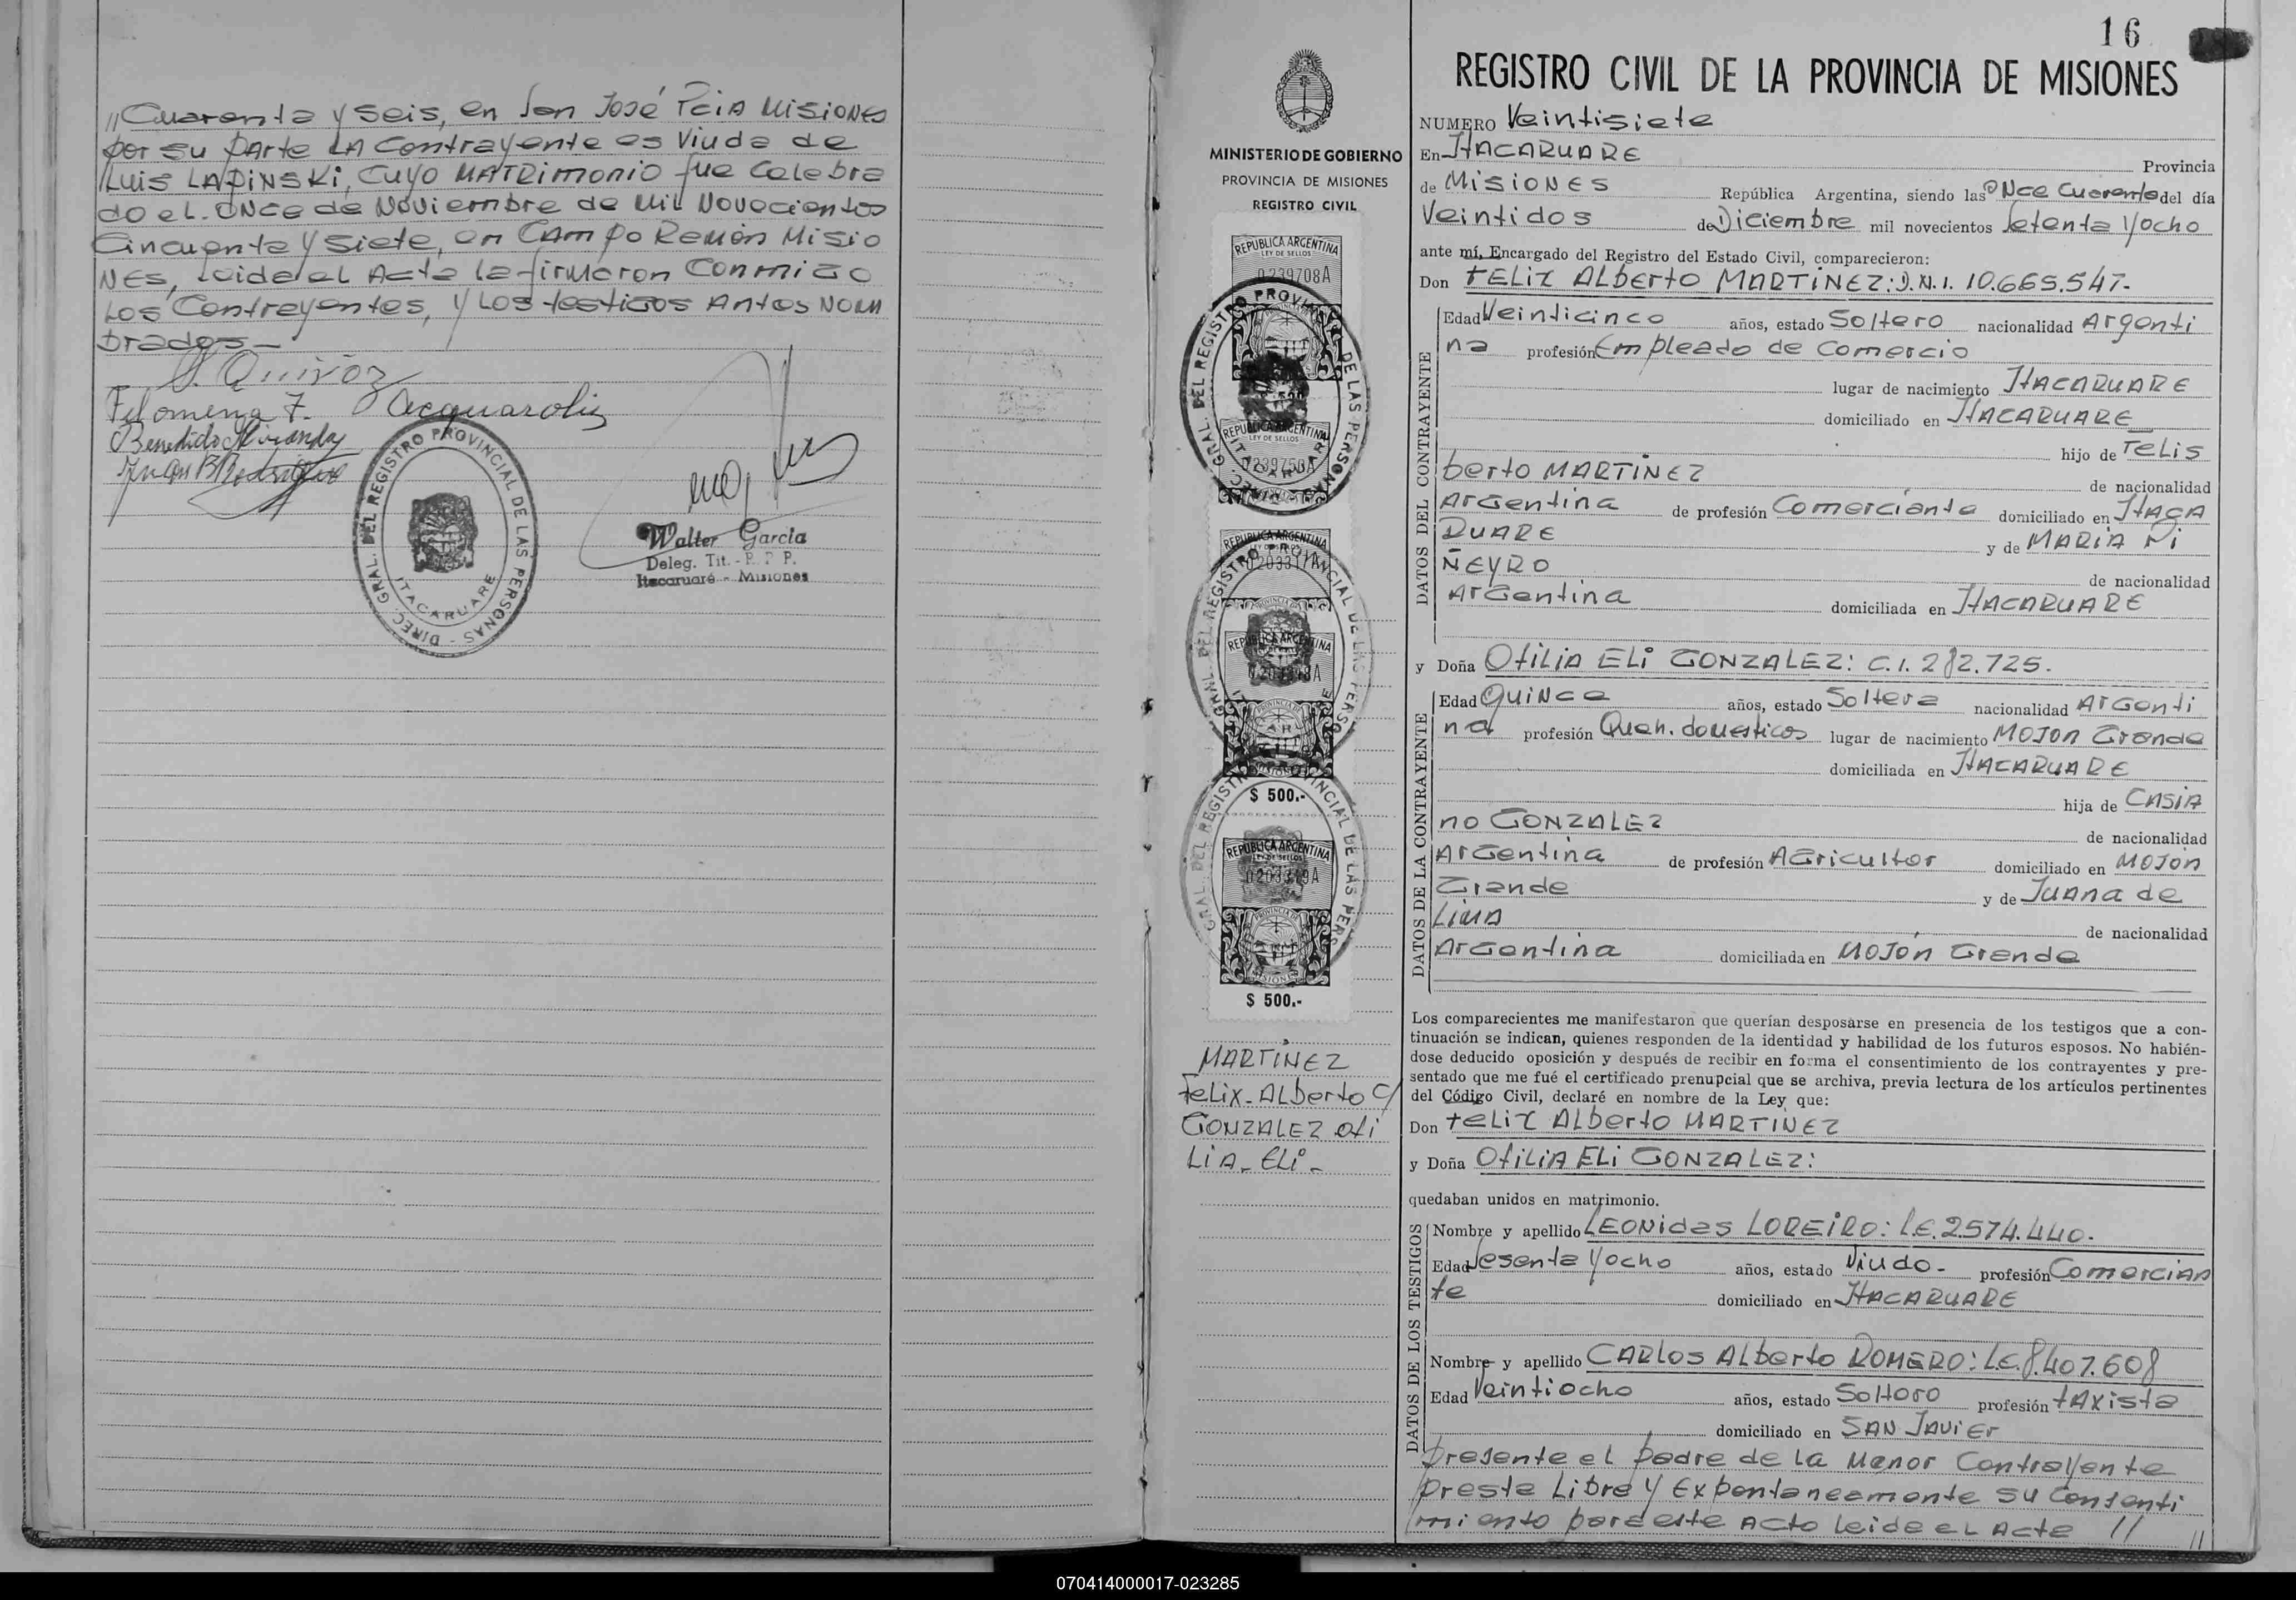 "Cuarenta y seis, en San José Pcia Misiones
por su parte la contrayente es Viuda de
Luis LAPINSKI, cuyo MATRIMONIO fue Celebra
do el ONce de Noviembre de Mil Novecientos
Cincuenta y siete, en CAMPO Ramón Misio
NES, Leida el Acta la firmaron CONMIGO
Los Contrayentes, y LOS testigos Antes NOM
brados—
Quiróz
Filomena F. Acquaroli
Benedido Miranda
Juan B Rodrigue
DIREC. GRAL. DEL REGISTRO PROVINCIAL DE LAS PERSONAS - ITACARUARE
Walter Garcia
Deleg. Tit. - R. P. P.
Itacaruaré - Misiones
MINISTERIO DE GOBIERNO
PROVINCIA DE MISIONES
REGISTRO CIVIL
REPUBLICA ARGENTINA
LEY DE SELLOS
0239708A
REPUBLICA ARGENTINA
LEY DE SELLOS
REPUBLICA ARGENTINA
REPUBLICA ARGENTINA
$ 500.-
REPUBLICA ARGENTINA
LEY DE SELLOS
0203319A
PROVINCIA DE
MISIONES
$ 500.-
MARTINEZ
Felix-ALberto C/
GONZALEZ Ofi
LiA-ELi-
16
REGISTRO CIVIL DE LA PROVINCIA DE MISIONES
NUMERO Veintisiete
En ItACARUARE Provincia
de MisiONES República Argentina, siendo las ONce Cuarenta del día
Veintidos de Diciembre mil novecientos Setenta Yocho
ante mí, Encargado del Registro del Estado Civil, comparecieron:
Don FELIX ALberto MARTINEZ: D.N.I. 10.665.547.
DATOS DEL CONTRAYENTE
Edad Veinticinco años, estado Soltero nacionalidad Argenti
na profesión Empleado de Comercio
lugar de nacimiento ItACARUARE
domiciliado en ItACARUARE
hijo de Felis
berto MARTINEZ de nacionalidad
Argentina de profesión Comerciante domiciliado en ItACA
RUARE y de MARIA Ni
ÑEYRO de nacionalidad
Argentina domiciliada en ItACARUARE
y Doña OfiLiA ELi GONZALEZ: C.I. 282.725.
DATOS DE LA CONTRAYENTE
Edad Quince años, estado Soltera nacionalidad Argenti
na profesión Queh. domesticos lugar de nacimiento MOJON Grande
domiciliada en ItACARUARE
hija de CASiA
no GONZALEZ de nacionalidad
Argentina de profesión Agricultor domiciliado en MOJON
Grande y de Juana de
LiMA de nacionalidad
Argentina domiciliada en MOJON Grande
Los comparecientes me manifestaron que querían desposarse en presencia de los testigos que a con-
tinuación se indican, quienes responden de la identidad y habilidad de los futuros esposos. No habién-
dose deducido oposición y después de recibir en forma el consentimiento de los contrayentes y pre-
sentado que me fué el certificado prenupcial que se archiva, previa lectura de los artículos pertinentes
del Código Civil, declaré en nombre de la Ley que:
Don FeLiX ALberto MARTINEZ
y Doña OfiLiA ELi GONZALEZ:
quedaban unidos en matrimonio.
DATOS DE LOS TESTIGOS
Nombre y apellido LEONidas LOREiRO: L.E. 2574.440.
Edad Sesenta Yocho años, estado Viudo- profesión Comercian
te domiciliado en ItACARUARE
Nombre y apellido CARLOS ALberto ROMERO: L.E. 8.407.608
Edad Veintiocho años, estado Soltero profesión tAxista
domiciliado en SAN JAViEr
Presente el padre de la Menor Contrayente
presta Libre y Expontaneamente su Consenti
miento para este ACto leida el Acta //
070414000017-023285